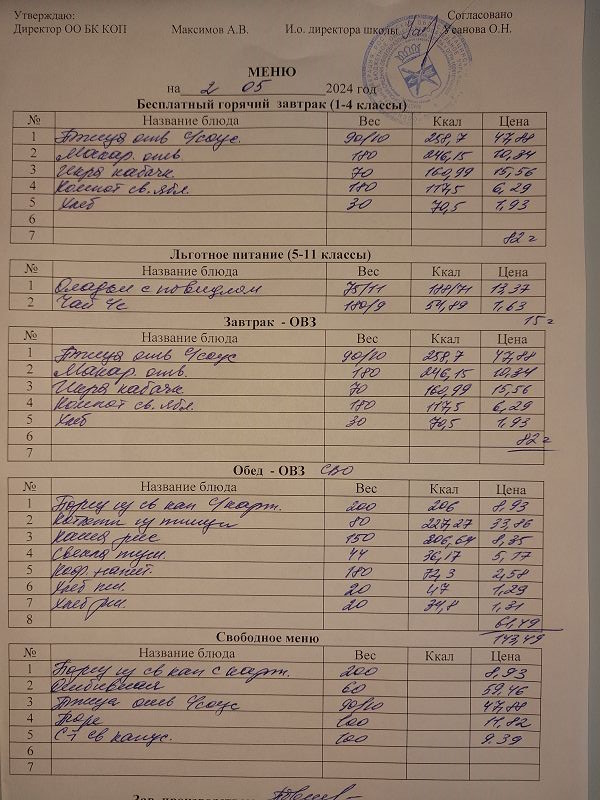 Утверждаю: Согласовано
Директор ОО БК КОП Максимов А.В. И.о. директора школы Усанова О.Н.
МЕНЮ
на 2 05 2024 год
Бесплатный горячий завтрак (1-4 классы)
№ Название блюда Вес Ккал Цена
1 Птица отв с/соус. 90/10 258,7 47,88
2 Макар. отв 180 246,15 10,34
3 Икра кабачк. 70 160,99 15,56
4 Компот св. ябл. 180 117,5 6,29
5 Хлеб 30 70,5 1,93
6
7 82 г
Льготное питание (5-11 классы)
№ Название блюда Вес Ккал Цена
1 Оладьи с повидлом 75/11 188/71 13,37
2 Чай с/с 180/9 54,89 1,63
15 г
Завтрак - ОВЗ
№ Название блюда Вес Ккал Цена
1 Птица отв с/соус 90/10 258,7 47,88
2 Макар. отв 180 246,15 10,34
3 Икра кабачк. 70 160,99 15,56
4 Компот св. ябл. 180 117,5 6,29
5 Хлеб 30 70,5 1,93
6 82 г
7
Обед - ОВЗ СВО
№ Название блюда Вес Ккал Цена
1 Борщ из св кап с/карт. 200 206 8,93
2 Котлеты из птицы 80 227,27 33,86
3 Каша рис 150 206,64 8,35
4 Свекла туш. 44 36,17 5,17
5 Коф. напит. 180 72,3 2,58
6 Хлеб пш. 20 47 1,29
7 Хлеб рж. 20 34,8 1,31
8 61,49
143,49
Свободное меню
№ Название блюда Вес Ккал Цена
1 Борщ из св кап с карт. 200 8,93
2 Отбивная 60 59,46
3 Птица отв с/соус 90/10 47,88
4 Пюре 100 11,82
5 С-т св капус. 100 9.39
6
7
Зав. производством